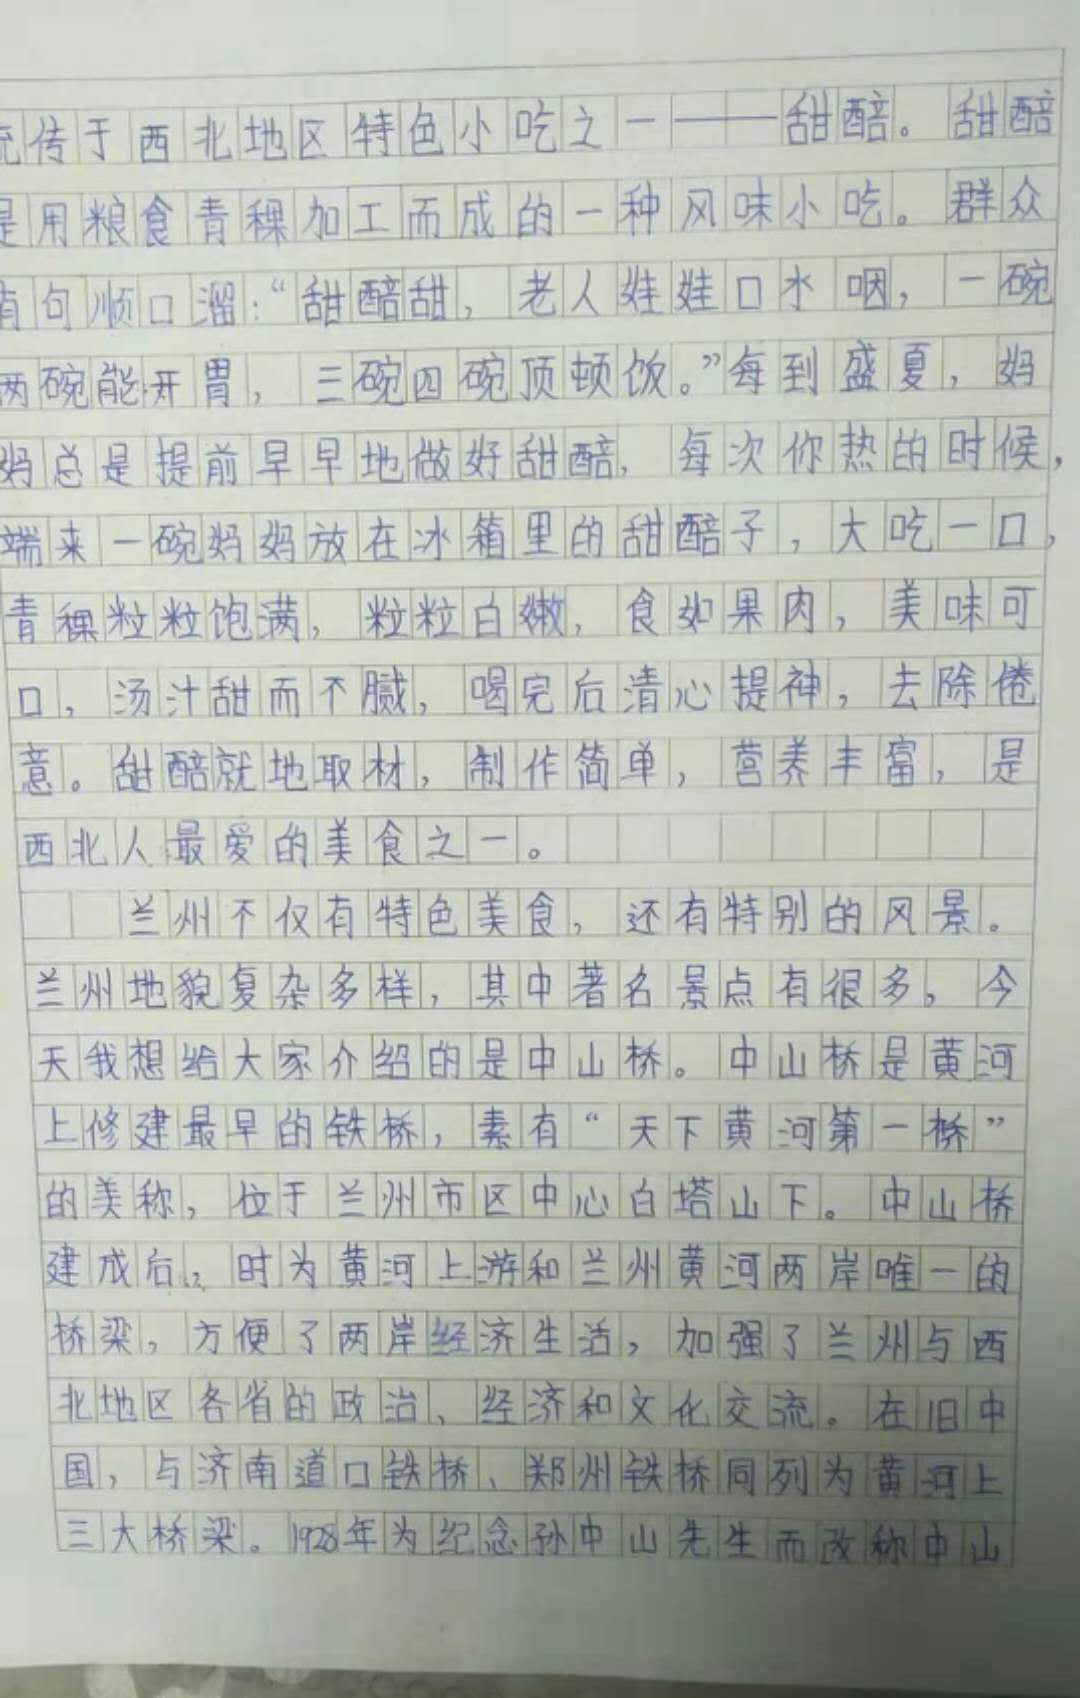 流传于西北地区特色小吃之一——甜醅。甜醅
是用粮食青稞加工而成的一种风味小吃。群众
有句顺口溜:“甜醅甜，老人娃娃口水咽，一碗
两碗能开胃，三碗四碗顶顿饭。”每到盛夏，妈
妈总是提前早早地做好甜醅，每次你热的时候，
端来一碗妈妈放在冰箱里的甜醅子，大吃一口，
青稞粒粒饱满，粒粒白嫩，食如果肉，美味可
口，汤汁甜而不腻，喝完后清心提神，去除倦
意。甜醅就地取材，制作简单，营养丰富，是
西北人最爱的美食之一。
兰州不仅有特色美食，还有特别的风景。
兰州地貌复杂多样，其中著名景点有很多。今
天我想给大家介绍的是中山桥。中山桥是黄河
上修建最早的铁桥，素有“天下黄河第一桥”
的美称，位于兰州市区中心白塔山下。中山桥
建成后，时为黄河上游和兰州黄河两岸唯一的
桥梁，方便了两岸经济生活，加强了兰州与西
北地区各省的政治、经济和文化交流。在旧中
国，与济南道口铁桥、郑州铁桥同列为黄河上
三大桥梁。1928年为纪念孙中山先生而改称中山